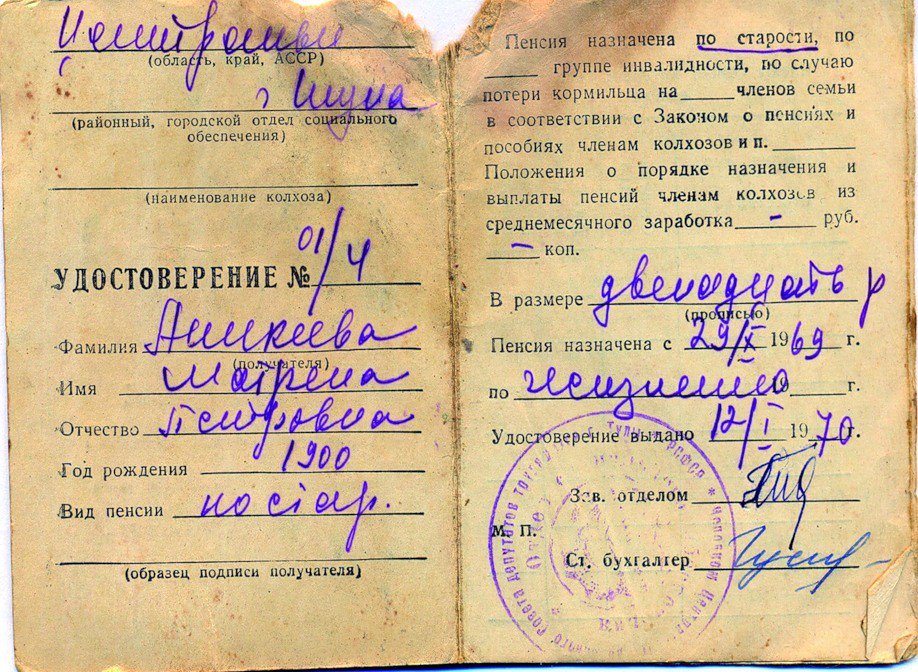 (область, край, АССР)
г Тула
(районный, городской отдел социального
обеспечения)
(наименование колхоза)
УДОСТОВЕРЕНИЕ № 01/4
Фамилия Аникеева
(получателя)
Имя Матрена
Отчество Петровна
Год рождения 1900
Вид пенсии по стар.
(образец подписи получателя)
Пенсия назначена по старости, по
группе инвалидности, по случаю
потери кормильца на членов семьи
в соответствии с Законом о пенсиях и
пособиях членам колхозов и п.
Положения о порядке назначения и
выплаты пенсий членам колхозов из
среднемесячного заработка - руб.
- коп.
В размере двенадцать р
(прописью)
Пенсия назначена с 29/X 1969 г.
по жизненно 19 г.
Удостоверение выдано 12/I 1970 г.
Зав. отделом
М. П.
Ст. бухгалтер